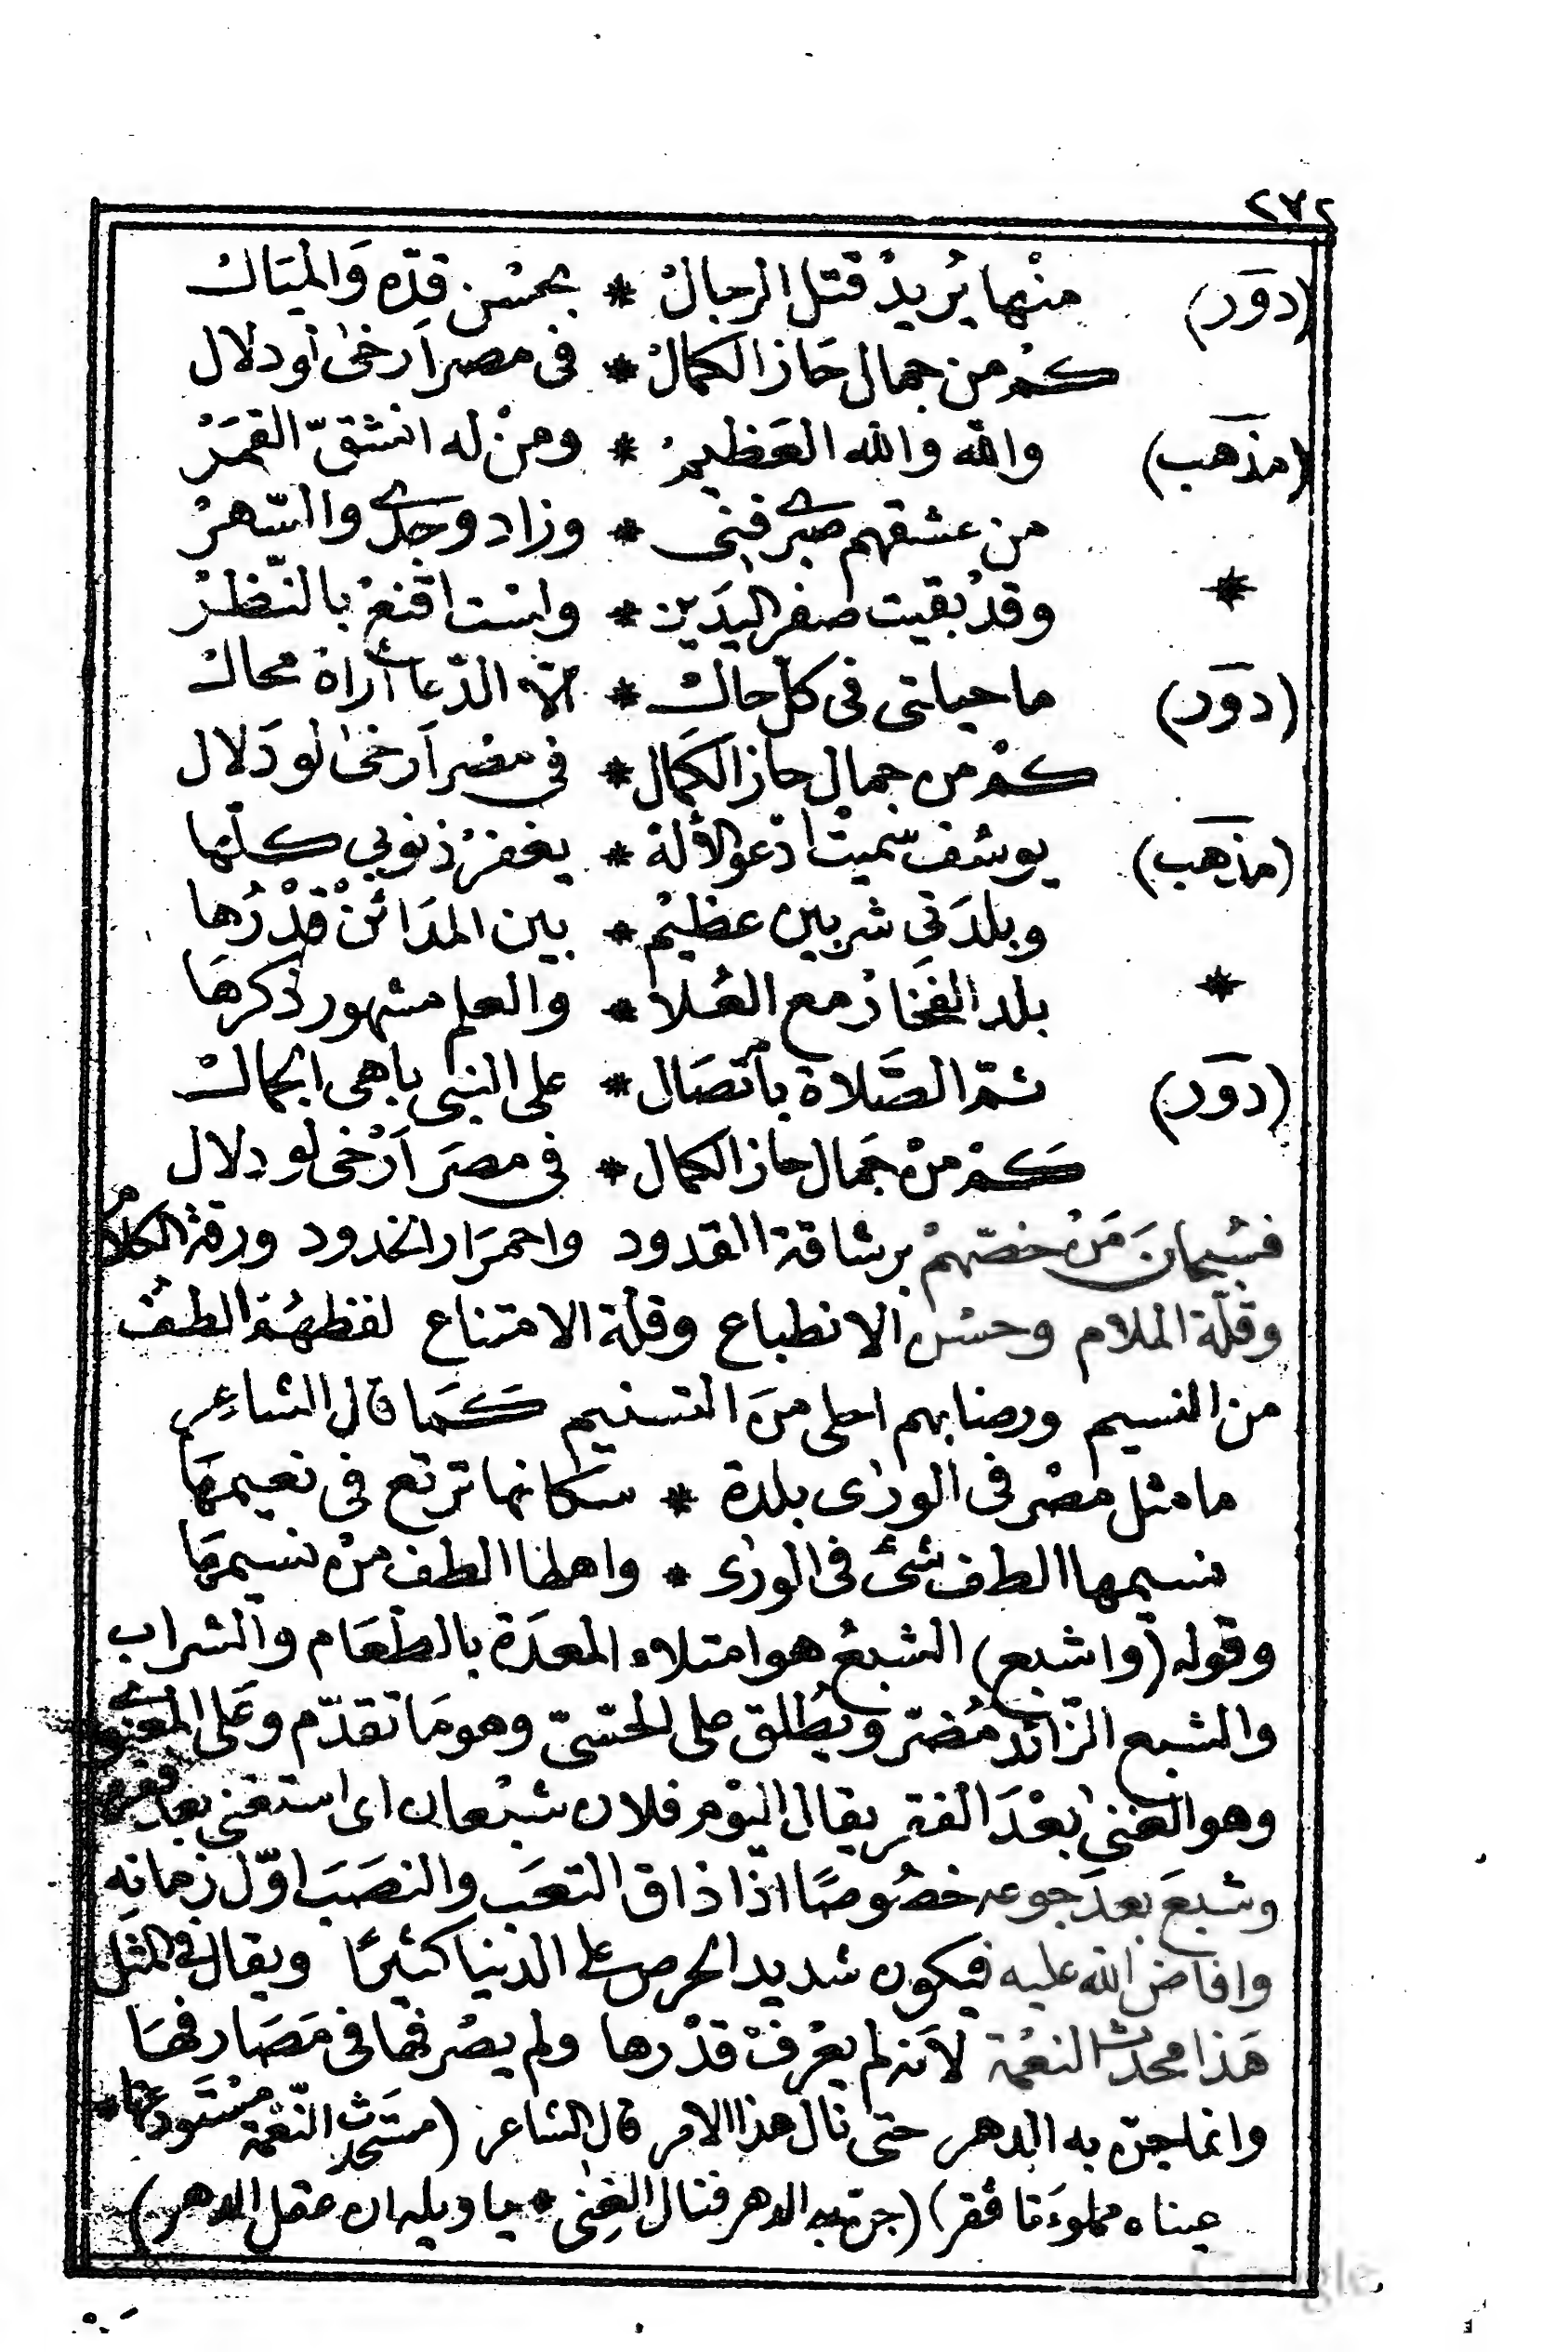 ٢٧٢
(دَور) منْها يُريدْ قتل الرجالْ * بحُسْن قدّه وَالميَالْ
كمْ من جمال حَاز الكمالْ * فى مصر اَرخىٰ لو دلال
(مذَهب) والله والله العَظيمْ * ومنْ له انشقّ القمَرْ
من عشقهم صبرى فنِى * وزاد وجدى والسّهرْ
* وقدْ بقيت صفر اليدَين * ولست اقنعْ بالنّظرْ
(دَور) ما حيلتى فى كلّ حالْ * الاّ الدّعا أراهُ محالْ
كمْ من جمال حاز الكَمال * فى مصْر اَرخىٰ لو دَلال
(مذَهب) يوسُفْ سّميتْ ادْعو الالهْ * يغفرْ ذنوبي كلّها
وبلدَتي شربين عظيمْ * بين المدَائنْ قدْرُها
* بلد الفَخَارْ مع العُلا * والعلم مشهور ذكرها
(دَور) ثمّ الصَّلاة بأتصَال * على النبى باهى الجمالْ
كَمْ منْ جَمال حاز الكمال * فى مصَر اَرْخى لو دلال
فسُبحانَ مَنْ خصّهمْ برشاقة القدود واحمرَار الخدود ورقة الكلام
وقلّة الملام وحسْن الانطباع وقلّة الامتناع لفظهُمْ الطفْ
من النسيم ورضابهم احلى منَ التسنيم كَمَا قال الشاعِر
ما مثل مصْر فى الورٰى بلدة * سكانها ترتع فى نعيمهَا
نسيمها الطف شئ فى الورٰى * واهلها الطف منْ نسيمهَا
وقوله (واشبع) الشبعُ هو امتلاء المعدَة بالطعَام والشراب
والشبع الزّائد مُضرّ ويُطلق على الحسّىّ وهو مَا تقدّم وعَلى المعنوى
وهو الغنىٰ بعْدَ الفقر يقال اليوْم فلان شبْعان اى استغنى بعد فقره
وشبعَ بعدَ جوعه خصُوصًا اذا ذاق التعَب والنصَبَ اوّل زمانِه
وافاض الله عليه فيكون شديد الحرص على الدنيا كثيرًا ويقال فى المثل
هَذا محدَث النعْمة لأنه لم يعْرفْ قدْرها ولم يصْرفْها فى مَصَارفهَا
وانما جنّ به الدهر حتى نال هذا الامر قال الشاعر (مستَحدث النّعْمة مسْتَودعها *
عيناه مملوءَة فُقر) (جنّ به الدهر فنال الغِنٰى * يا ويله ان عقل الدهر)